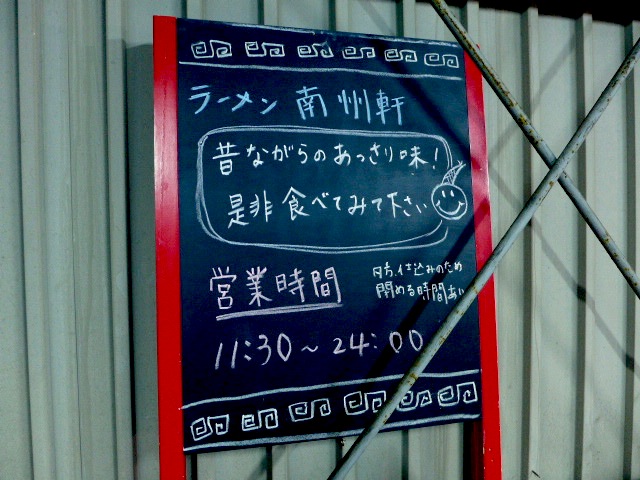 ラーメン 南州軒
昔ながらのあっさり味!
是非食べてみて下さい
営業時間
夕方、仕込みのため
閉める時間あり
11:30~24:00